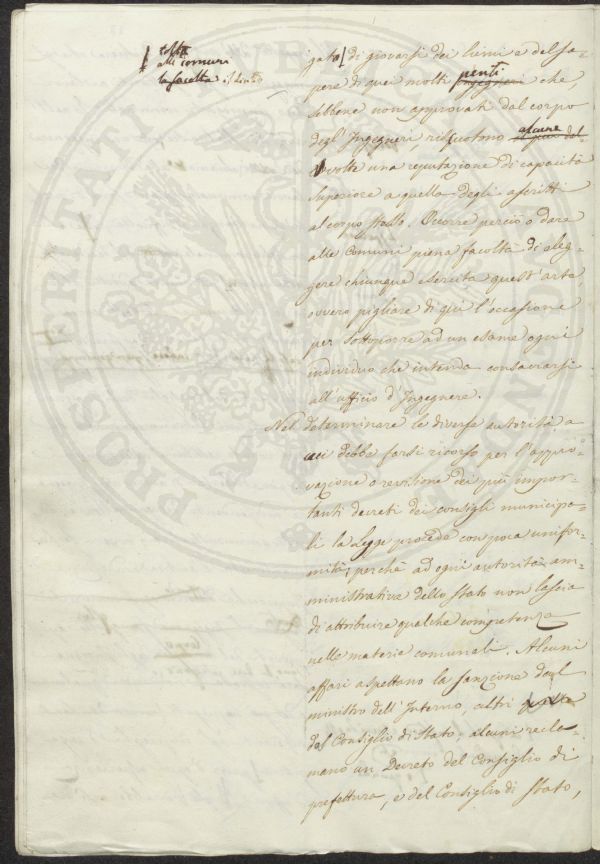 tolta
alle comuni
la facoltà
gato di giovarsi dei lumi e del sa-
pere di quei molti periti che,
sebbene non approvati dal corpo
degl'Ingegneri, riscuotono alcune
volte una reputazione di capacità
superiore a quella degli ascritti
al corpo stesso. Occorre perciò o dare
alle Comuni piena facoltà di eleg-
gere chiunque esercita quest'arte,
ovvero pigliare di qui l'occasione
per sottoporre ad un esame ogni
individuo che intenda consacrarsi
all'ufficio d'Ingegnere.
Nel determinare le diverse autorità a
cui debba farsi ricorso per l'appro-
vazione o revisione dei più impor-
tanti decreti dei consigli municipa-
li la Legge procede con poca unifor-
mità, perchè ad ogni autorità am-
ministrativa dello Stato non lascia
di attribuire qualche competenza
nelle materie comunali. Alcuni
affari aspettano la sanzione dal
ministro dell'Interno, altri
dal Consiglio di Stato, alcuni recla-
mano un Decreto del Consiglio di
prefettura, e del Consiglio di Stato,
PROSPERITATI
VERO